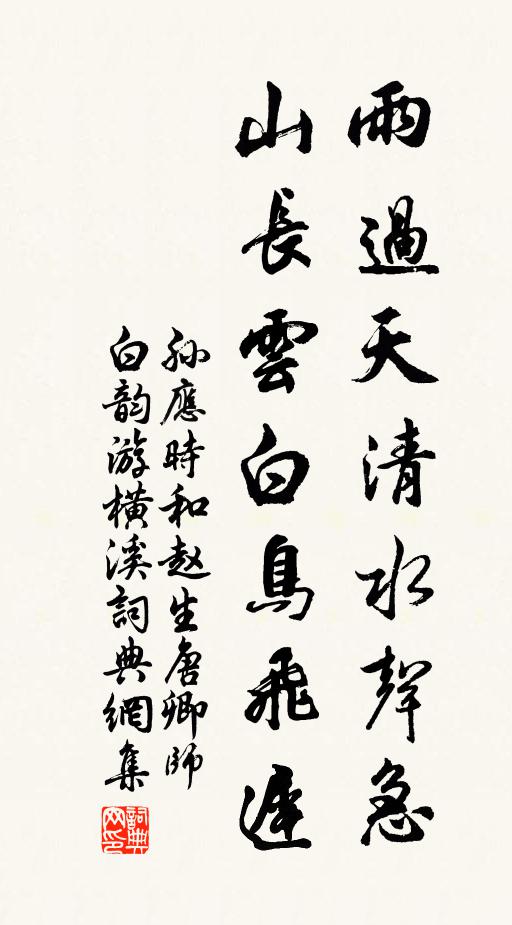 雨過天清水聲急
山長雲白鳥飛遲
孫應時和赵生唐卿師
白韵游横溪詞典網集
詞典網印